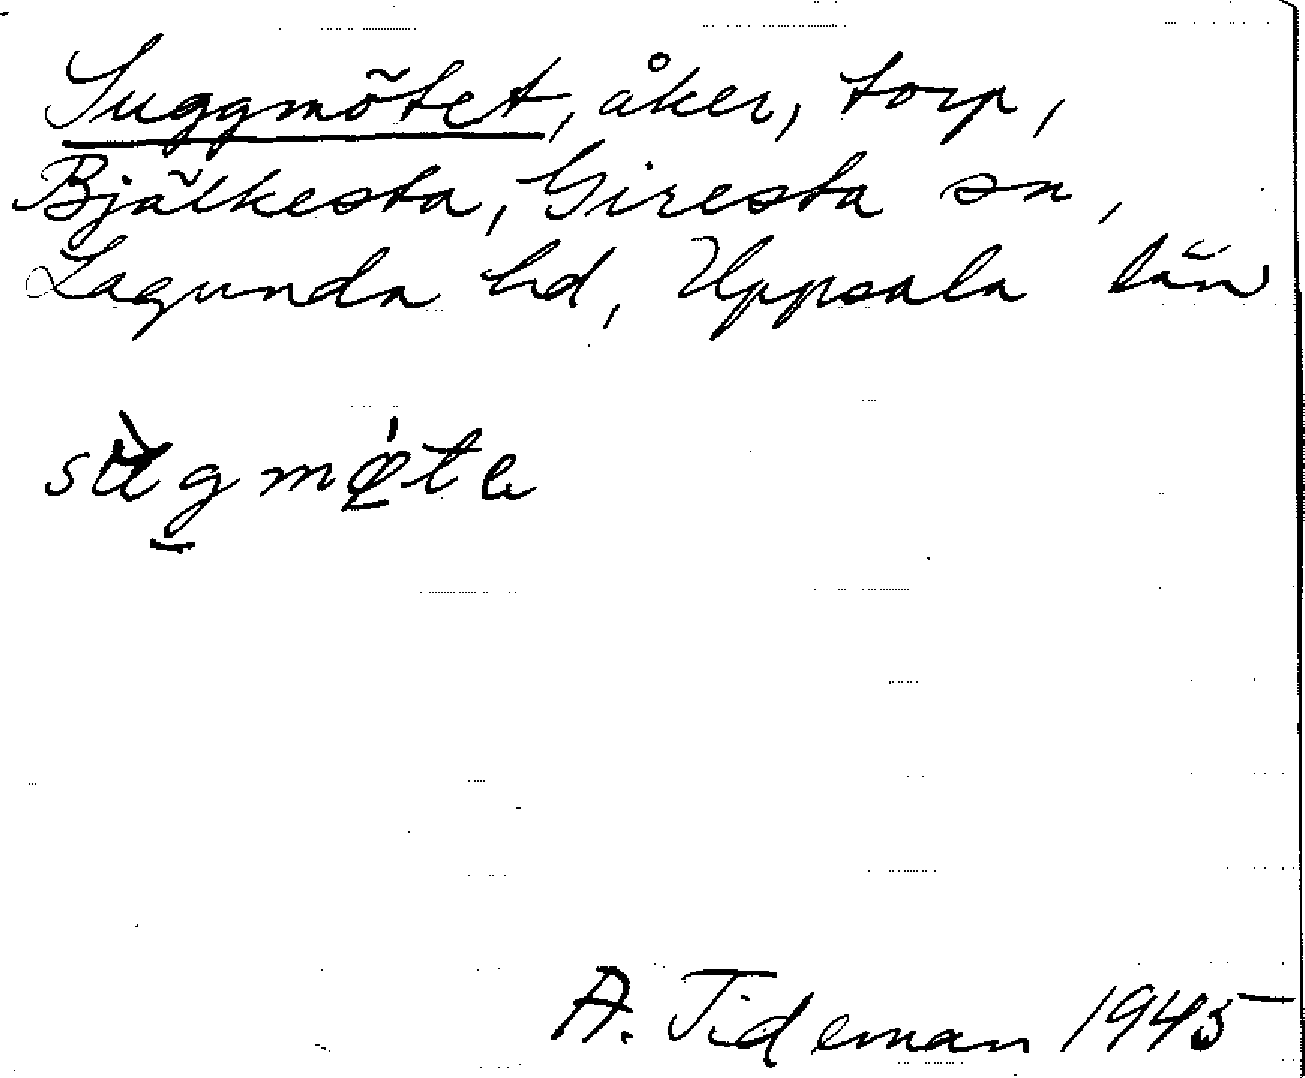 Suggmötet, åker, torp,
Bjälkesta, Giresta sn,
Lagunda hd, Uppsala län
A. Tideman 1945